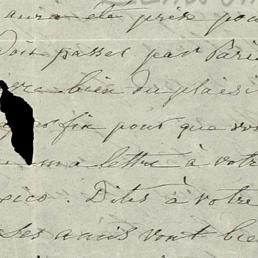 aura été pris pour
Dois passer par Paris
bien du plaisir
fix pour que vous
ma lettre à votre
Dites à votre
Ses amis vont bien